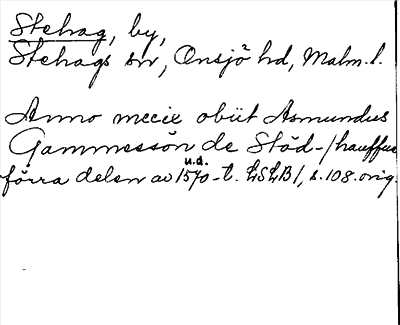 Stehag, by,
Stehags sn, Onsjö hd, Malm. l.
Anno mccic obiit Asmundus
Gammessön de Stöd-/hauffue
u.d.
förra delen av 1570-t. LSLB/, s. 108. orig.